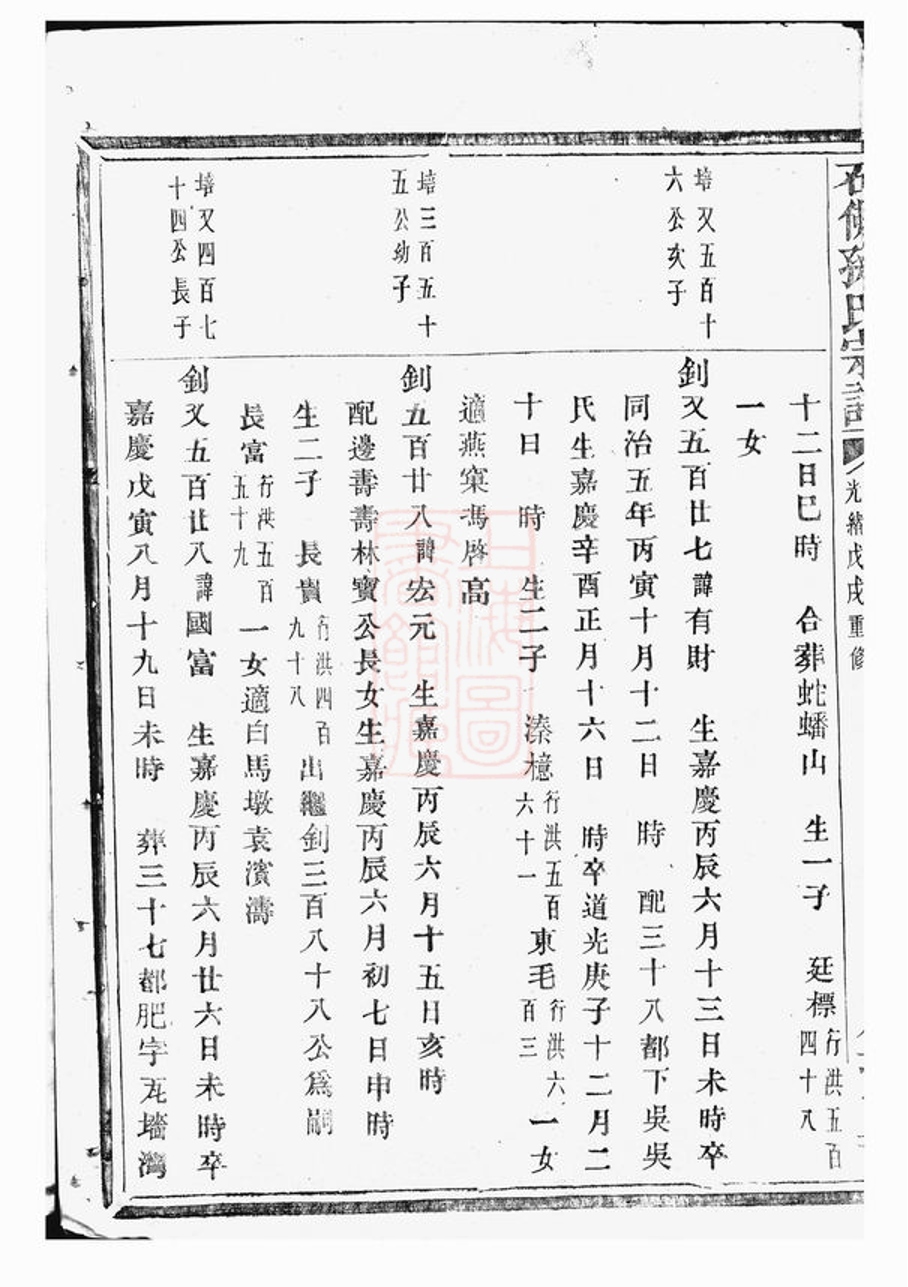 孫氏宗譜
光緒戊戌重修
十二日巳時 合葬蛇蟠山 生一子 廷標行洪五百四十八
一女
培又五百十六公次子
釗又五百廿七諱有財 生嘉慶丙辰六月十三日未時卒
同治五年丙寅十月十二日 時 配三十八都下吳吳
氏生嘉慶辛酉正月十六日 時卒道光庚子十二月二
十日 時 生二子 溱檍行洪五百六十一東毛行洪六百三一女
適燕窠馮啓高
培三百五十五公幼子
釗五百廿八諱宏元 生嘉慶丙辰六月十五日亥時
配邊壽壽林寶公長女生嘉慶丙辰六月初七日申時
生二子 長貴行洪四百九十八出繼釗三百八十八公為嗣
長富行洪五百五十九一女適白馬墩袁濱濤
培又四百七十四公長子
釗又五百廿八諱國富 生嘉慶丙辰六月廿六日未時卒
嘉慶戊寅八月十九日未時 葬三十七都肥字瓦墻灣